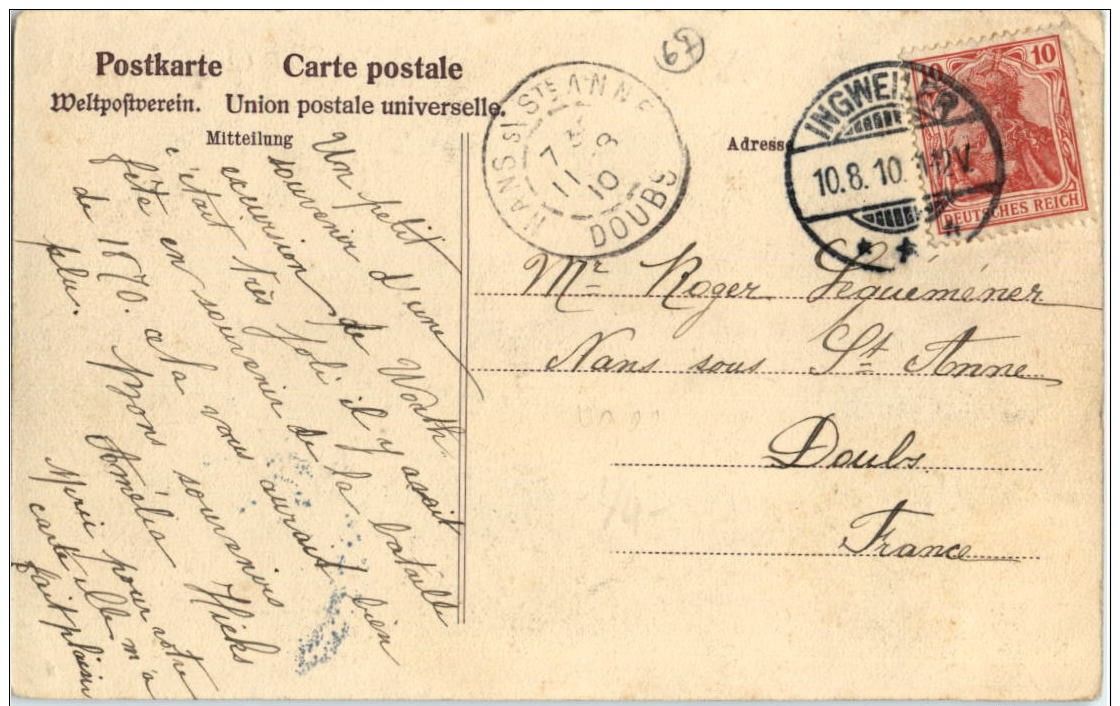 Postkarte Carte postale
Weltpostverein. Union postale universelle.
Mitteilung
Adresse
Un petit
souvenir d'une
excursion de Wörth.
c'était très joli il y avait
fête en souvenir de la bataille
de 1870. cela vous aurait bien
plu.
Mons souvenirs
Amélia Hicks
Merci pour votre
carte elle m'a
fait plaisir
NANS S/ STE ANNE
7 8
11 10
DOUBS
INGWEILER
10.8.10. 1-12V.
10
DEUTSCHES REICH
Mr Roger Léquemener
Nans sous St Anne
Doubs
France